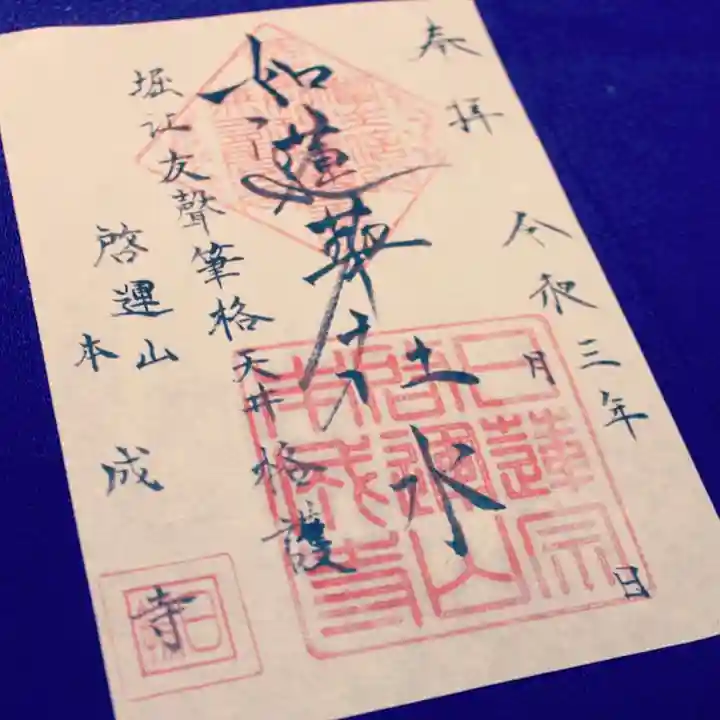 奉拝
令和三年 月 日
如蓮華在水
堀江友聲筆格天井格護
啓運山
本成寺
日蓮宗
啓運山
本成寺